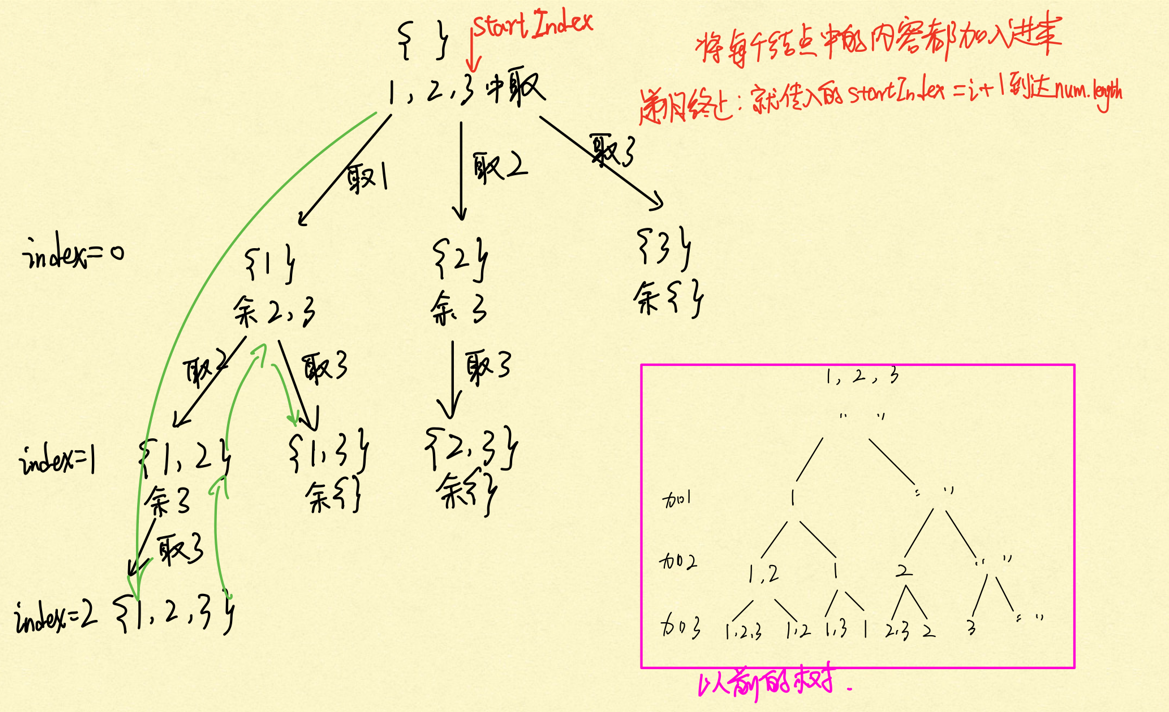 { } startIndex
1, 2, 3 中取
将每个结点中的内容都加入进来
递归终止: 就传入的startIndex = i+1到达num.length
取1 取2 取3
index=0 {1} {2} {3}
余2,3 余3 余{}
取2 取3 取3
index=1 {1,2} {1,3} {2,3}
余3 余{} 余{}
取3
index=2 {1,2,3}
1, 2, 3
" "
加1 1 " "
加2 1,2 1 2 " "
加3 1,2,3 1,2 1,3 1 2,3 2 3 " "
以前的树.